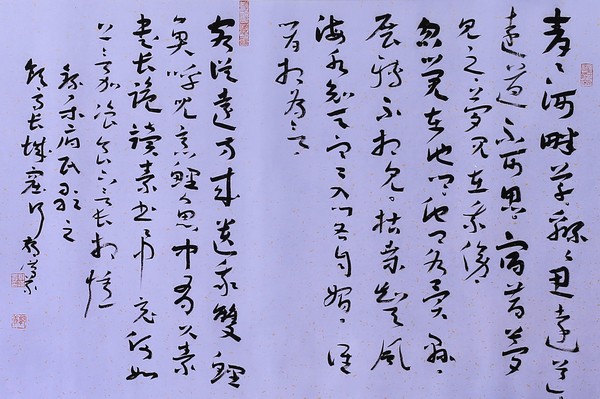 青青河畔草綿綿思遠道
遠道不可思宿昔夢
見之夢見在我傍
忽覺在他鄉他鄉各異縣
展轉不相見枯桑知天風
海水知天寒入門各自媚誰
肯相為言
客從遠方來遺我雙鯉
魚呼兒烹鯉魚中有尺素
書長跪讀素書中竟何如
上言加餐食下言長相憶
樂府民歌之
飲馬長城窟行